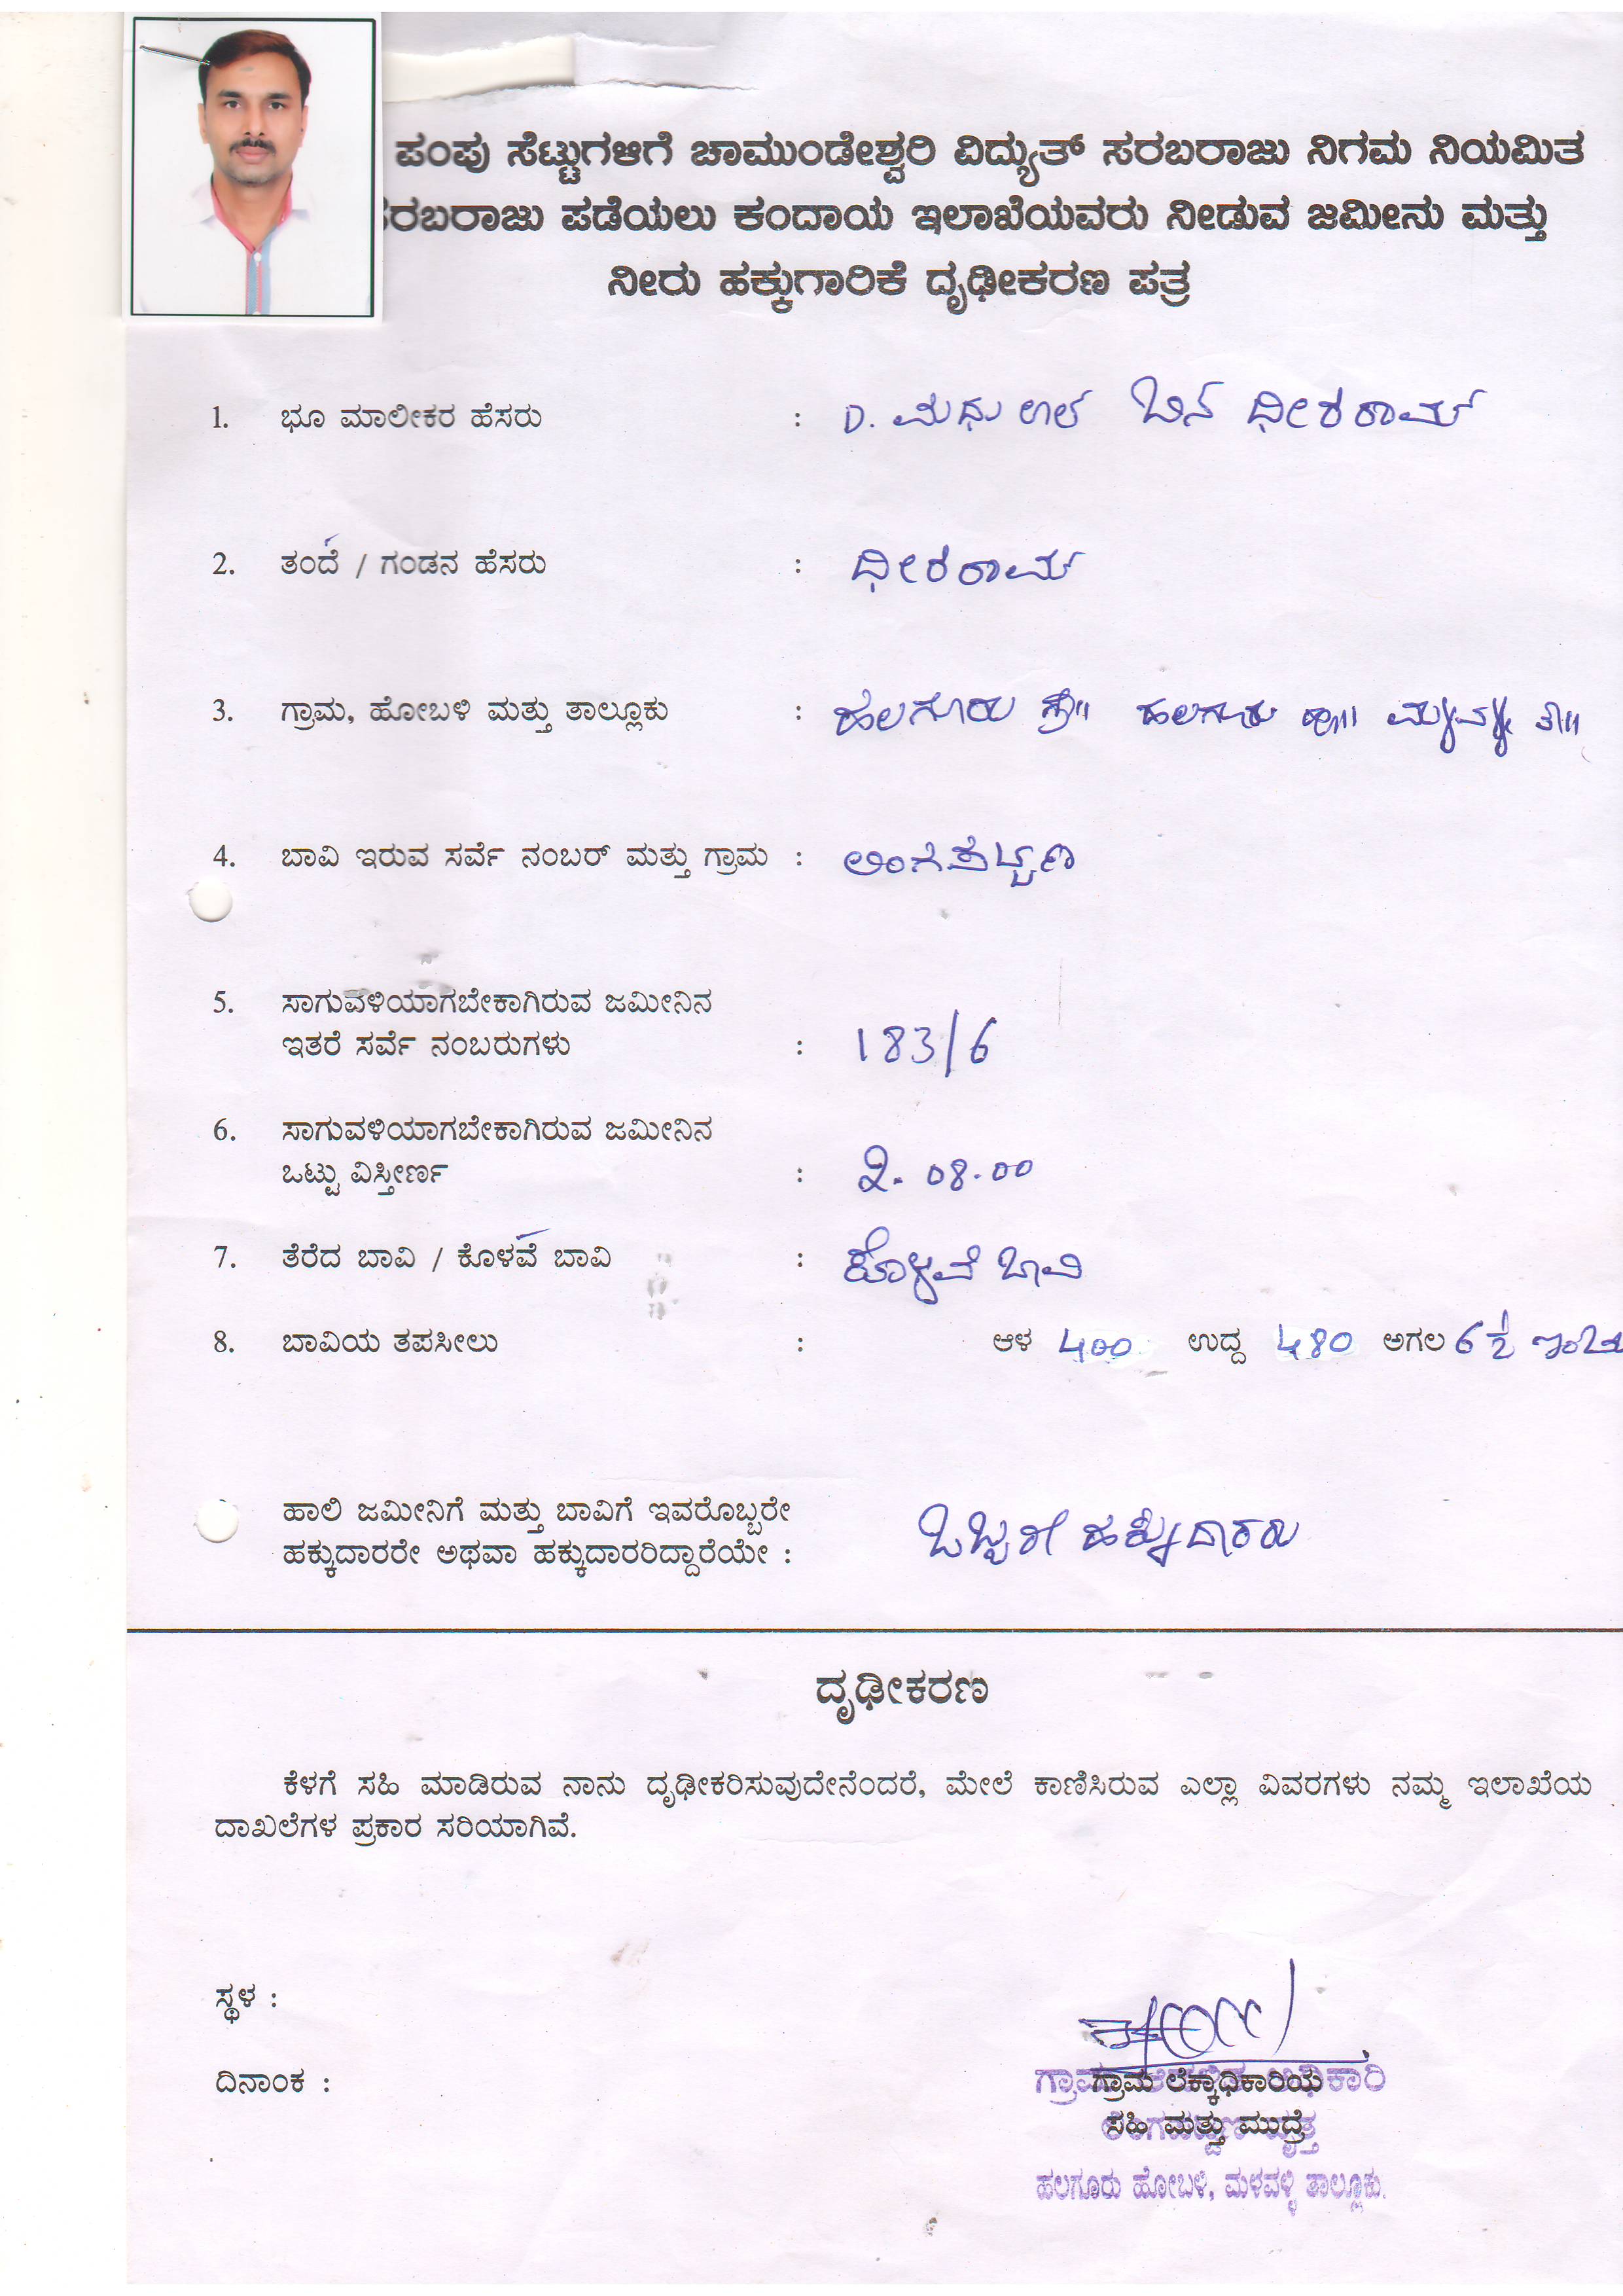 ಪಂಪು ಸೆಟ್ಟುಗಳಿಗೆ ಚಾಮುಂಡೇಶ್ವರಿ ವಿದ್ಯುತ್ ಸರಬರಾಜು ನಿಗಮ ನಿಯಮಿತ
ಸರಬರಾಜು ಪಡೆಯಲು ಕಂದಾಯ ಇಲಾಖೆಯವರು ನೀಡುವ ಜಮೀನು ಮತ್ತು
ನೀರು ಹಕ್ಕುಗಾರಿಕೆ ದೃಢೀಕರಣ ಪತ್ರ
1. ಭೂ ಮಾಲೀಕರ ಹೆಸರು : D. ಮಧು ಬಿನ್ ಧೀರರಾಮ್
2. ತಂದೆ / ಗಂಡನ ಹೆಸರು : ಧೀರರಾಮ್
3. ಗ್ರಾಮ, ಹೋಬಳಿ ಮತ್ತು ತಾಲ್ಲೂಕು : ಹಲಗೂರು ಗ್ರಾ|| ಹಲಗೂರು ಹೋ|| ಮಳವಳ್ಳಿ ತಾ||
4. ಬಾವಿ ಇರುವ ಸರ್ವೆ ನಂಬರ್ ಮತ್ತು ಗ್ರಾಮ : ಲಿಂಗಪಟ್ಟಣ
5. ಸಾಗುವಳಿಯಾಗಬೇಕಾಗಿರುವ ಜಮೀನಿನ
ಇತರೆ ಸರ್ವೆ ನಂಬರುಗಳು : 183/6
6. ಸಾಗುವಳಿಯಾಗಬೇಕಾಗಿರುವ ಜಮೀನಿನ
ಒಟ್ಟು ವಿಸ್ತೀರ್ಣ : 2. 08.00
7. ತೆರೆದ ಬಾವಿ / ಕೊಳವೆ ಬಾವಿ : ಕೊಳವೆ ಬಾವಿ
8. ಬಾವಿಯ ತಪಸೀಲು : ಆಳ 400 ಉದ್ದ 480 ಅಗಲ 6½ ಇಂಚು
ಹಾಲಿ ಜಮೀನಿಗೆ ಮತ್ತು ಬಾವಿಗೆ ಇವರೊಬ್ಬರೇ
ಹಕ್ಕುದಾರರೇ ಅಥವಾ ಹಕ್ಕುದಾರರಿದ್ದಾರೆಯೇ : ಒಬ್ಬರೇ ಹಕ್ಕುದಾರರು
ದೃಢೀಕರಣ
ಕೆಳಗೆ ಸಹಿ ಮಾಡಿರುವ ನಾನು ದೃಢೀಕರಿಸುವುದೇನೆಂದರೆ, ಮೇಲೆ ಕಾಣಿಸಿರುವ ಎಲ್ಲಾ ವಿವರಗಳು ನಮ್ಮ ಇಲಾಖೆಯ
ದಾಖಲೆಗಳ ಪ್ರಕಾರ ಸರಿಯಾಗಿವೆ.
ಸ್ಥಳ :
ದಿನಾಂಕ :
ಗ್ರಾಮ ಲೆಕ್ಕಾಧಿಕಾರಿಯ
ಸಹಿ ಮತ್ತು ಮುದ್ರೆ
ಹಲಗೂರು ಹೋಬಳಿ, ಮಳವಳ್ಳಿ ತಾಲ್ಲೂಕು.